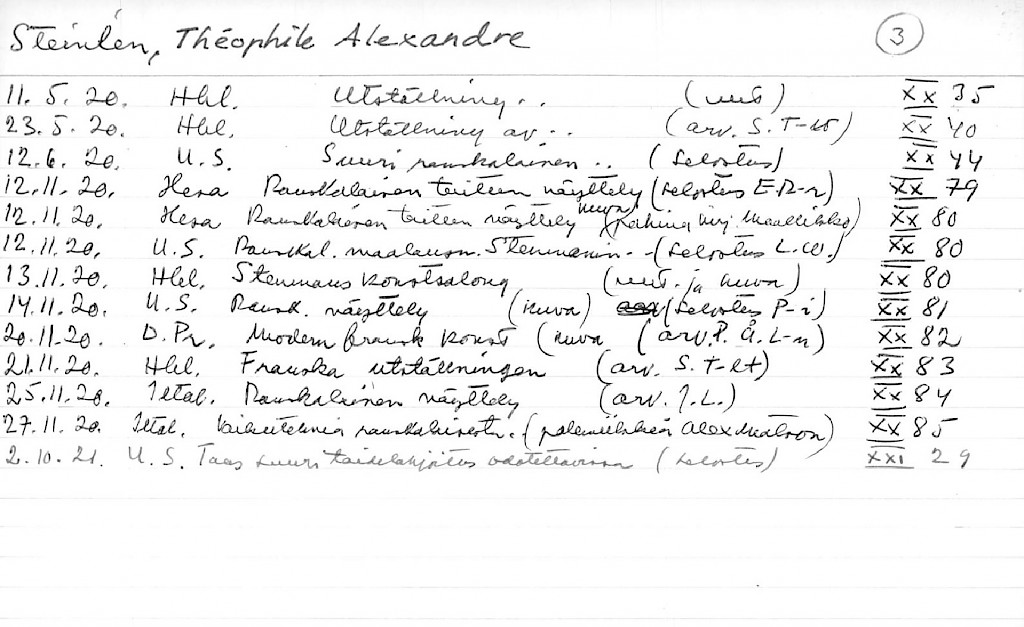 Steinlen, Théophile Alexandre 3
11. 5. 20. Hbl. Utställning . . (uut) XX 35
23. 5. 20. Hbl. Utställning av . . (arv. S. T-lt) XX 40
12. 6. 20. U.S. Suuri ranskalainen . . (selostus) XX 44
12. 11. 20. Hesa Ranskalaisen taiteen näyttely (selostus E.R-r) XX 79
12. 11. 20. Hesa Ranskalaisen taiteen näyttely (kuva) XX 80
12. 11. 20. U.S. Ranskal. maalausn. Stenmanin . . (selostus L.W.) XX 80
13. 11. 20. Hbl. Stenmans konstsalong (uut. ja kuva) XX 80
14. 11. 20. U.S. Ransk. näyttely (kuva) (selostus P-i) XX 81
20. 11. 20. D. Pr. Modern fransk konst (kuva (arv. P. Å. L-n) XX 82
21. 11. 20. Hbl. Franska utställningen (arv. S. T-lt) XX 83
25. 11. 20. Iltal. Ranskalainen näyttely (arv. J.L.) XX 84
27. 11. 20. Iltal. Vaikutelmia . . (Alex Matson) XX 85
2. 10. 21. U.S. Taas suuri taidelahjoitus odotettavissa (selostus) XXI 29